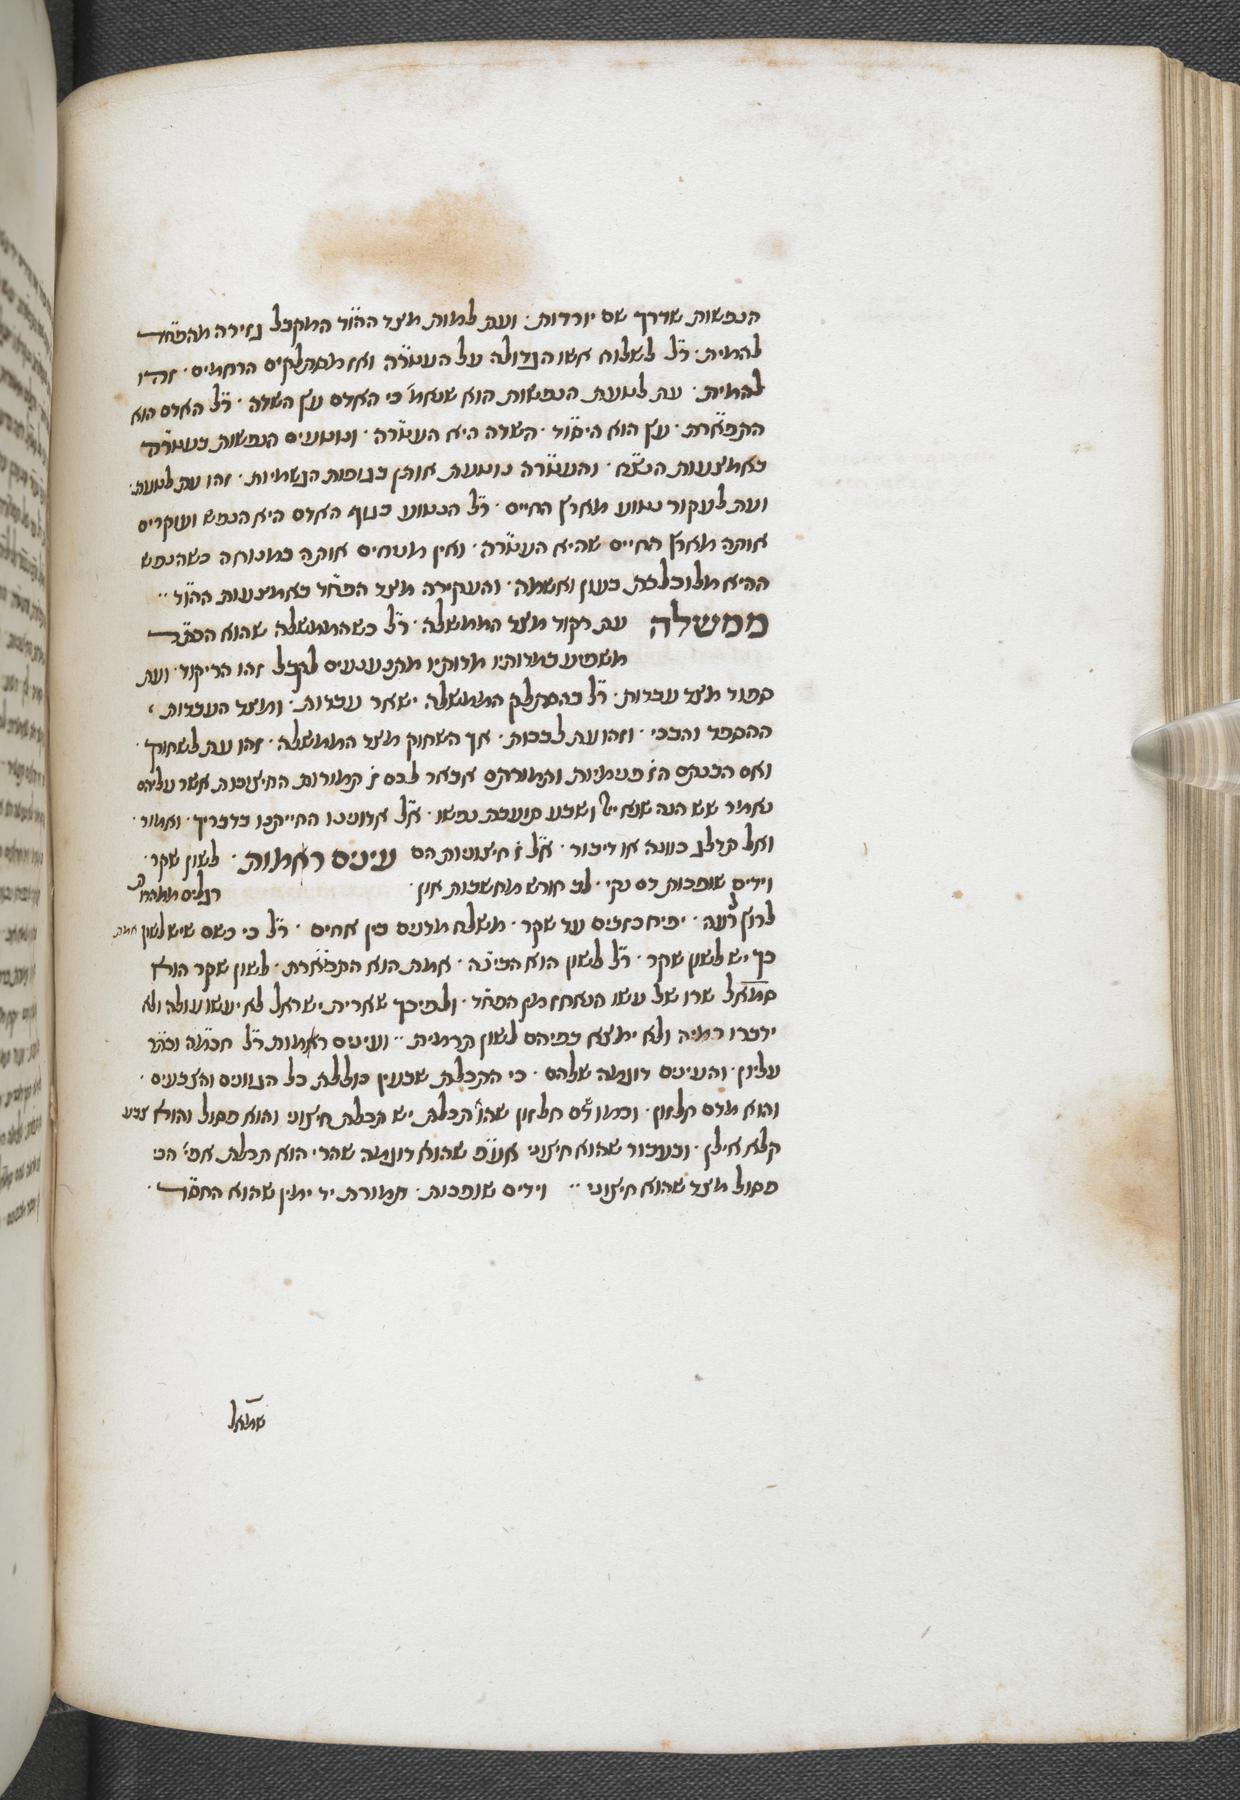 הנפשות שדרך שם יורדות · ועת למות מצד ההוד המקבל גזירה מהפחד
להמית · ר"ל לשלוח אשו הגדולה על העטרה ואז מסתלקים הרחמים · זהו
להמית · עת לטעת הנפשות הוא שנאמ' כי האדם עץ השדה · ר"ל האדם הוא
התפארת · עץ הוא היסוד · השדה היא העטרה · ונוטעים הנפשות בעטרה
באמצעות הנצח · והעטרה נוטעת אותן בגופות הגשמיות · זהו עת לטעת ·
ועת לעקור נטוע מארץ החיים · ר"ל הנטוע בגוף האדם היא הנפש ועוקרים
אותה מארץ החיים שהיא העטרה · ואין מניחים אותה במנוחה כשהנפש
ההיא מלוכלכת בעון ואשמה · והעקירה מצד הפחד באמצעות ההוד ··
ממשלה עת רקוד מצד הממשלה · ר"ל כשהממשלה שהוא הכתר
משפיע במדותיו מדותיו מתנענעים לקבל זהו הריקוד · ועת
ספוד מצד עבדות · ר"ל בהסתלק הממשלה ישאר עבדות · ומצד העבדות
ההספד והבכי · וזהו עת לבכות · אך השחוק מצד הממשלה · זהו עת לשחוק ·
ואם הבנתם הז' פנימיות והמורתם אבאר לכם ז' תמורות החיצונות אשר עליהם
נאמר שש הנה שנא י"י ושבע תועבת נפשו · א"ל אדונינו החייתנו בדבריך · ואמור ·
ואל תדלג כוונה או דיבור · א"ל ז' חיצוניות הם עינים ראמות · לשון שקר ·
וידים שופכות דם נקי · לב חורש מחשבות און · רגלים ממהרות
לרוץ לרעה · יפיח כזבים עד שקר · משלח מדנים בין אחים · ר"ל כי כשם שיש לשון אמת
כך יש לשון שקר · ר"ל לשון הוא הבינה · אמת הוא התפארת · לשון שקר הוא
סמאל שרו של עשו הנאחז מן הפחד · ולפיכך שארית ישראל לא יעשו עולה ולא
ידברו רמיה ולא ימצא בפיהם לשון תרמית ·· ועינים ראמות ר"ל חכמה וכתר
עליון · והעינים דוגמה שלהם · כי התכלת שבעין כוללת כל הגוונים והצבעים ·
והוא מדם חלזון · וכמו דם חלזון שהו' תכלת יש תכלת חיצוני והוא פסול והוא צבע
קלא אילן · ובעבור שהוא חיצוני אע"פ שהוא דוגמה שהרי הוא תכלת אפי' הכי
פסול מצד שהוא חיצוני ·· וידים שופכות · תמורת יד ימין שהוא החסד ·
שמאל